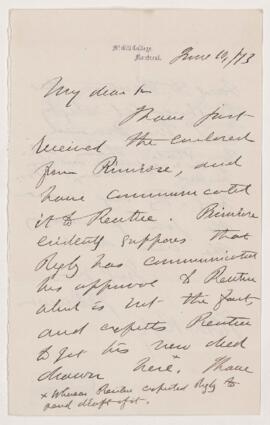 McGill College,
Montreal.
June 10, 1873
My dear Sir
I have just
received the enclosed
from Primrose, and
have communicated
it to Rentue. Primrose
evidently supposes that
Rigby has communicated
his approval to Rentue
which is not the fact
and expects Rentue
to get his new deed
drawn here.x I have
x Whereas Rentue expected Rigby to
send draft of it.